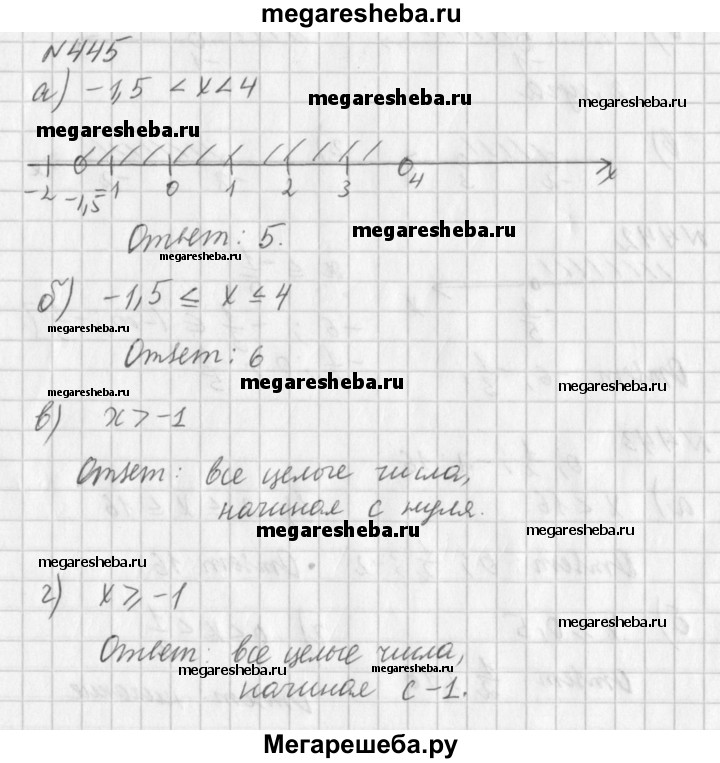 megaresheba.ru
N445
а) -1,5 < x < 4
megaresheba.ru
megaresheba.ru
megaresheba.ru
-2 -1,5 -1 0 1 2 3 4 x
Ответ: 5.
megaresheba.ru
megaresheba.ru
б) -1,5 ≤ x ≤ 4
megaresheba.ru
megaresheba.ru
Ответ: 6
megaresheba.ru
megaresheba.ru
megaresheba.ru
в) x > -1
Ответ: все целые числа,
начиная с нуля.
megaresheba.ru
megaresheba.ru
megaresheba.ru
г) x ≥ -1
Ответ: все целые числа,
megaresheba.ru
megaresheba.ru
начиная с -1.
Мегарешеба.ру